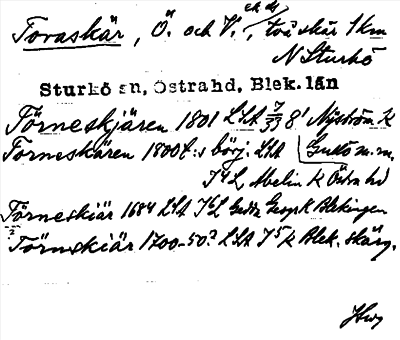 Toraskär, Ö. och V., två skär 1 km
N Sturkö
Sturkö sn, Östrahd, Blek. län
Törneskjären 1801 LSA 7/33 8' Nyström K
Törneskären 1800t:s börj. LSA Gullö m.m.
J4L Abelin K Östra hd
Törneskiär 1684 LSA J6L Gedda Geogr K Blekingen
Törnskiär 1700-50? LSA J5K Blek. skärg.